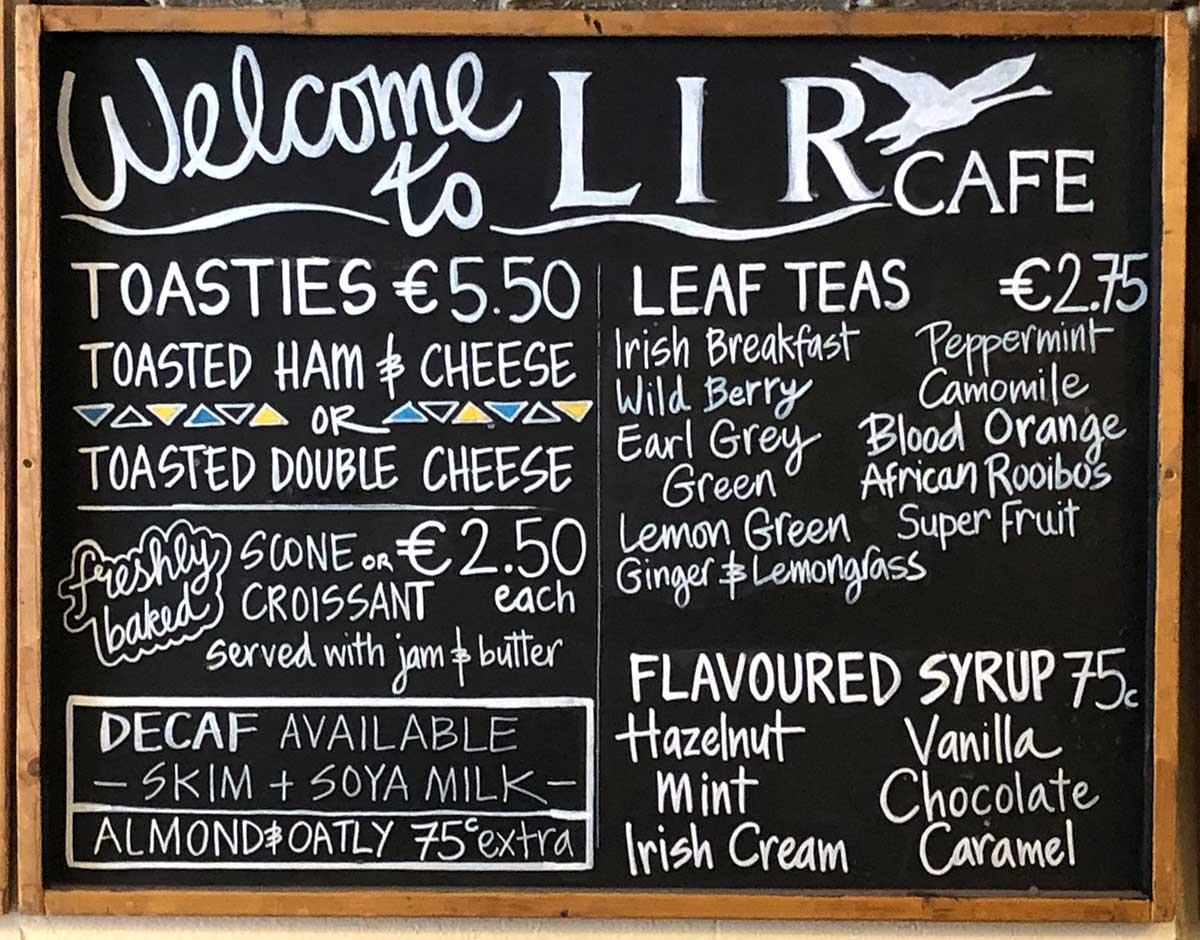 Welcome to LIR CAFE
TOASTIES €5.50
TOASTED HAM & CHEESE
OR
TOASTED DOUBLE CHEESE
freshly baked
SCONE OR €2.50
CROISSANT each
served with jam & butter
DECAF AVAILABLE
— SKIM + SOYA MILK —
ALMOND & OATLY 75c extra
LEAF TEAS €2.75
Irish Breakfast Peppermint
Wild Berry Camomile
Earl Grey Blood Orange
Green African Rooibos
Lemon Green Super Fruit
Ginger & Lemongrass
FLAVOURED SYRUP 75c
Hazelnut Vanilla
Mint Chocolate
Irish Cream Caramel